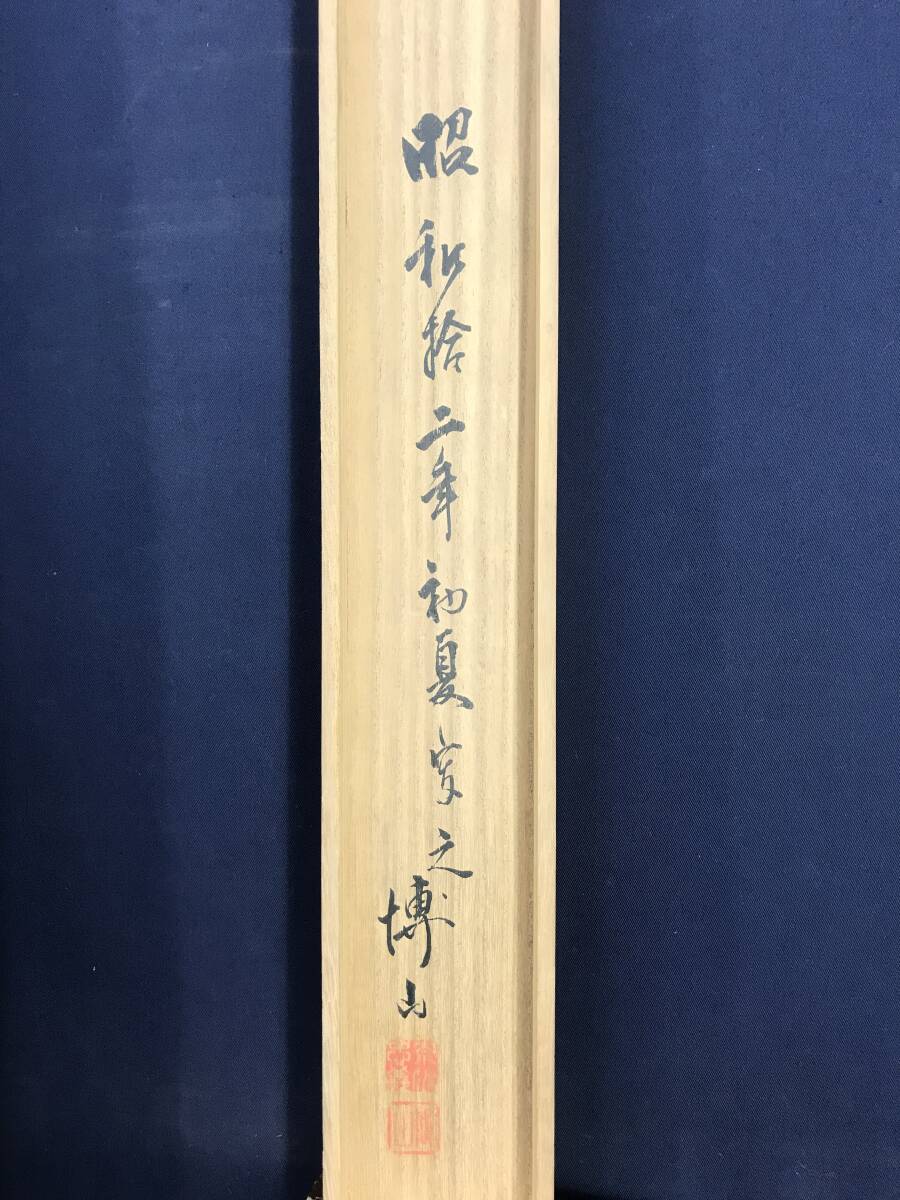 昭和拾二年初夏寫之
博山